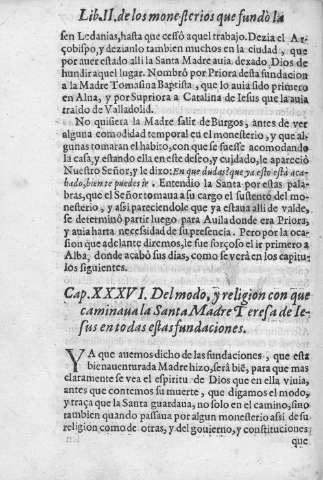 Lib.II.de los monesterios que fundò la
sen Ledanias, hasta que cessò aquel trabajo. Dezia el Ar-
çobispo, y dezianlo tambien muchos en la ciudad, que
por auer estado alli la Santa Madre auia dexado Dios de
hundir aquel lugar. Nombrò por Priora desta fundacion
a la Madre Tomasina Baptista, que lo auia sido primero
en Alua, y por Supriora a Catalina de Iesus que la auia
traido de Valladolid.
No quisiera la Madre salir de Burgos, antes de ver
alguna comodidad temporal en el monesterio, y que al-
gunas tomaran el habito, con que se fuesse acomodando
la casa, y estando ella en este deseo, y cuidado, le apareciò
Nuestro Señor, y le dixo: En que dudas? que ya esto està aca-
bado, bien te puedes ir. Entendio la Santa por estas pala-
bras, que el Señor tomaua a su cargo el sustento del mone-
sterio, y assi pareciendole que ya estaua alli de valde,
se determinò partir luego para Auila donde era Priora,
y auia harta necessidad de su presencia. Pero por la oca-
sion que adelante diremos, le fue forçoso el ir primero a
Alba, donde acabò sus dias, como se verà en los capitu-
los siguientes.
Cap. XXXVI. Del modo, y religion con que
caminaua la Santa Madre Teresa de Ie-
sus en todas estas fundaciones.
YA que auemos dicho de las fundaciones, que esta
bienauenturada Madre hizo, serà biẽ, para que mas
claramente se vea el espiritu de Dios que en ella viuia,
antes que contemos su muerte, que digamos el modo,
y traça que la Santa guardaua, no solo en el camino, sino
tambien quando passaua por algun monesterio assi de su
religion como de otras, y del gouierno, y constituciones
que